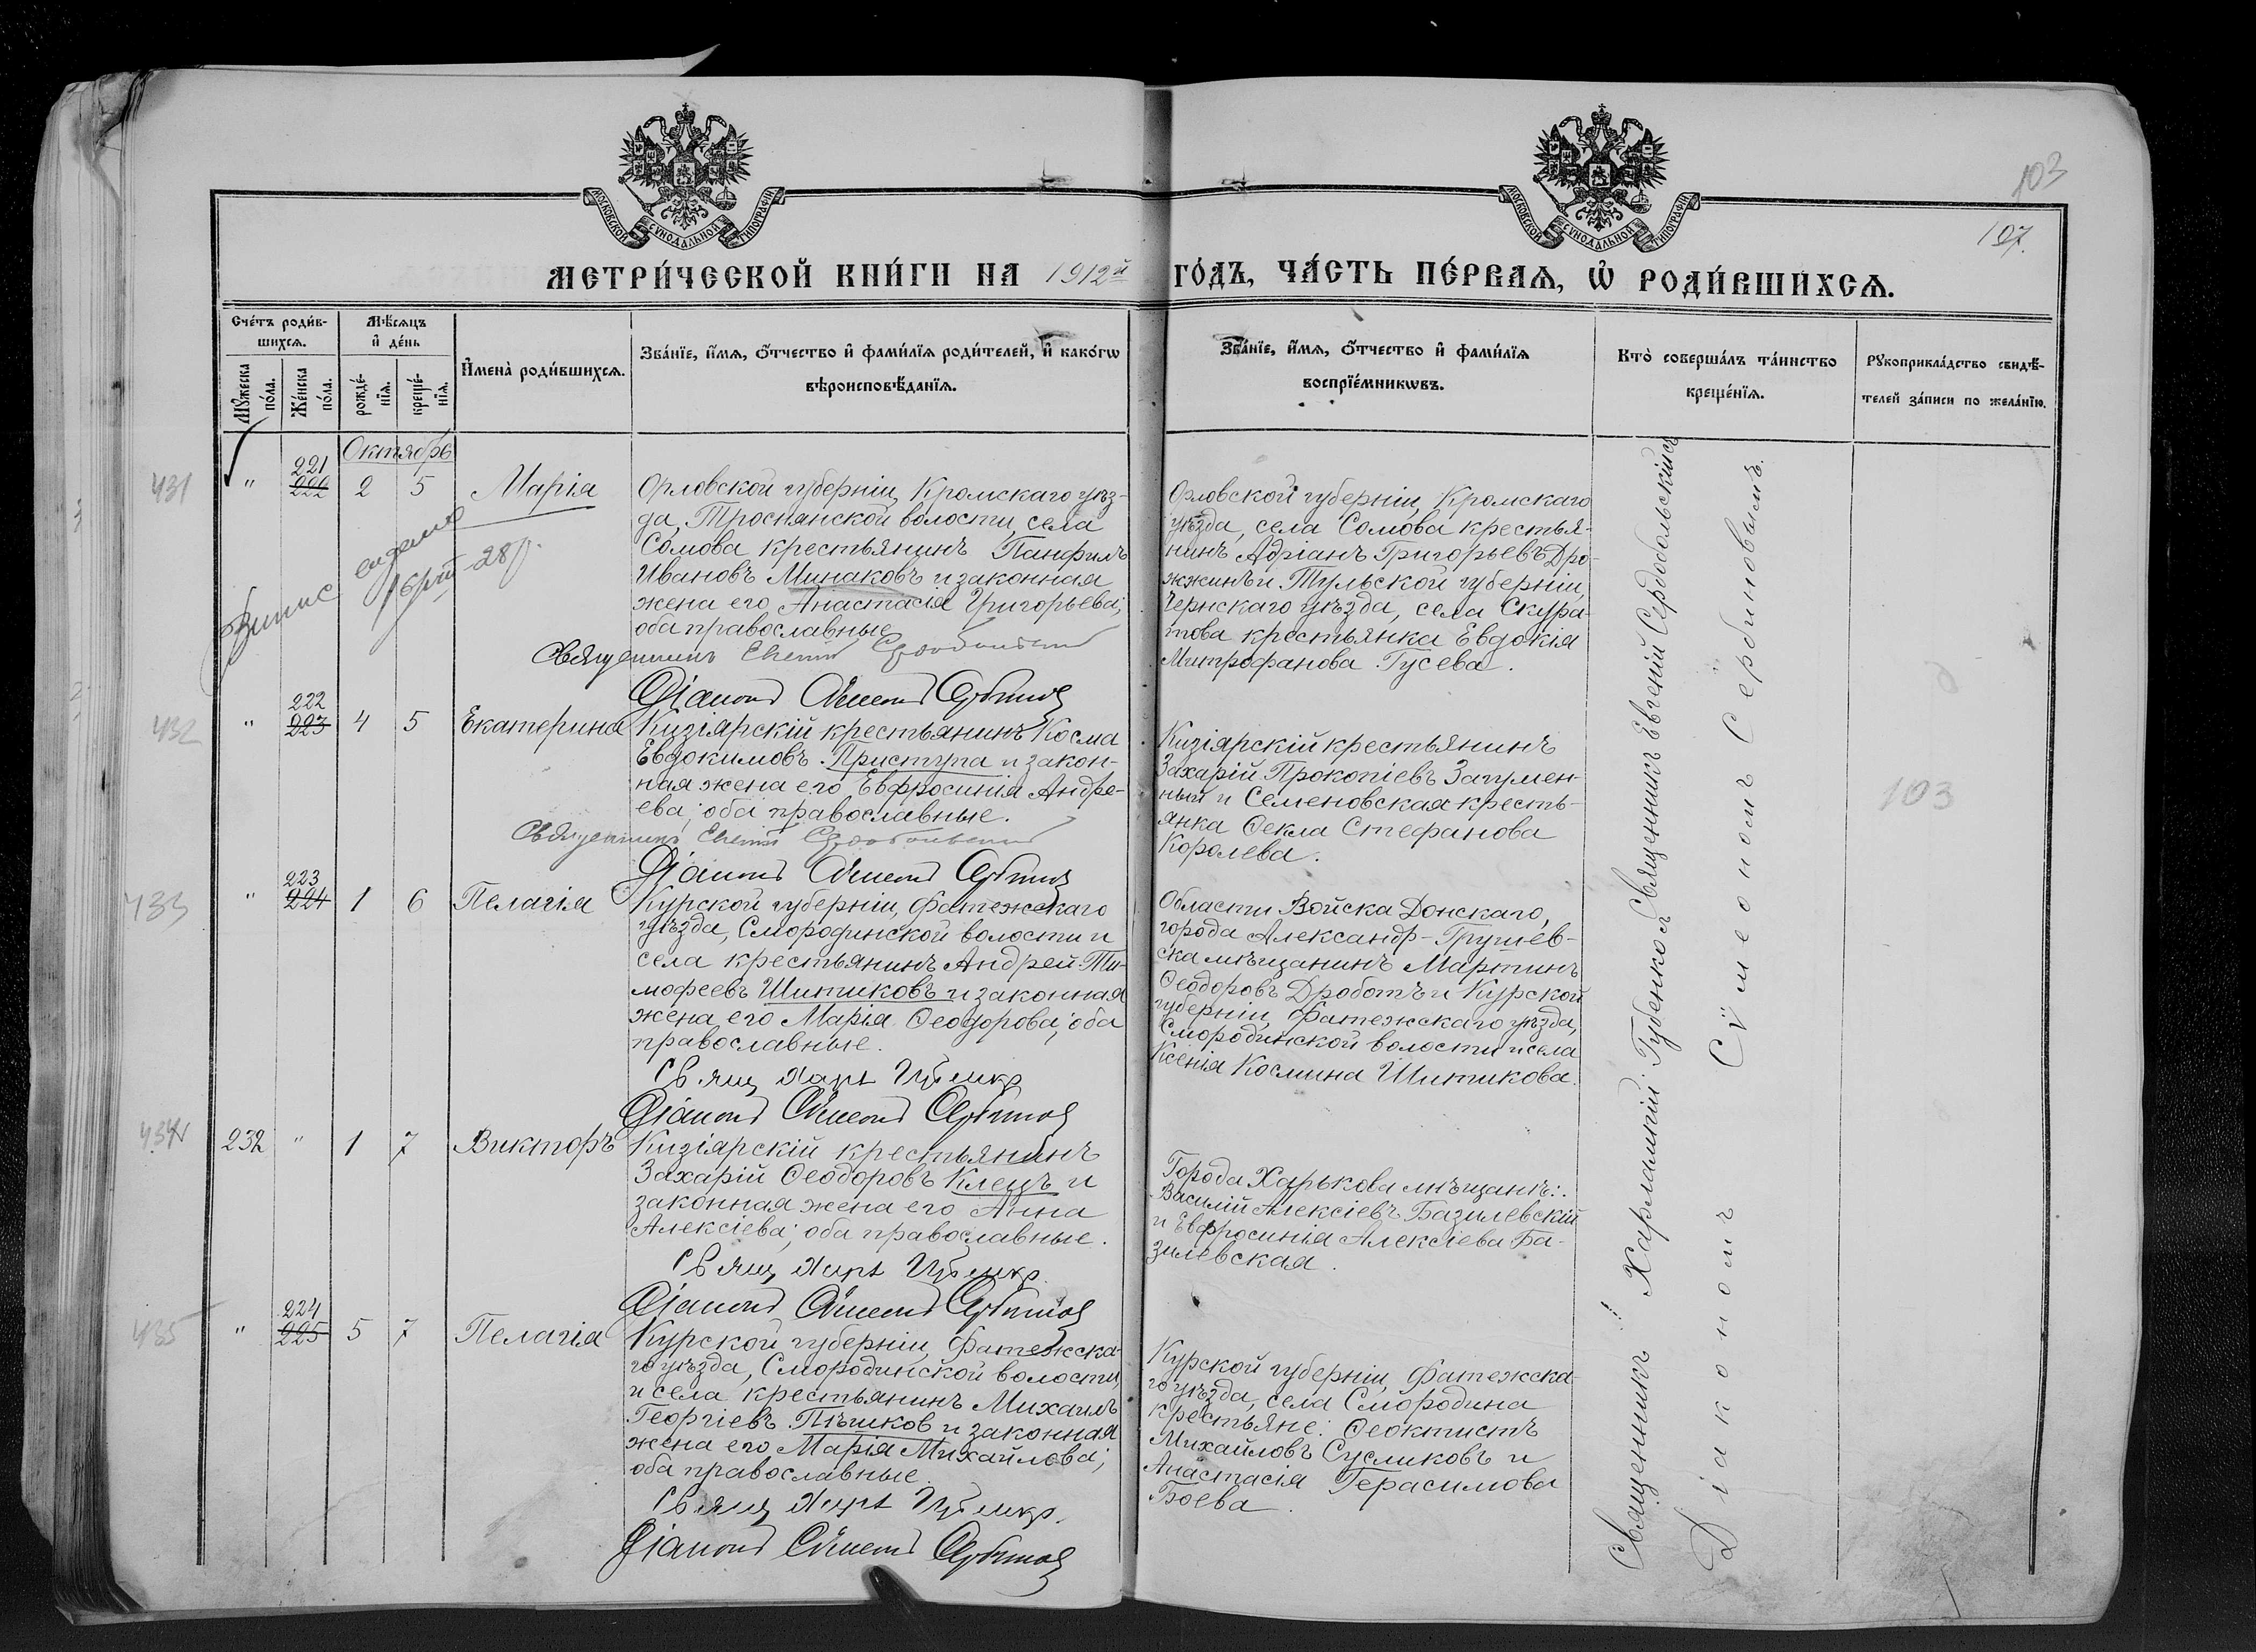 МОСКОВСКОЙ СѴНОДАЛЬНОЙ ТИПОГРАФІИ
МОСКОВСКОЙ СѴНОДАЛЬНОЙ ТИПОГРАФІИ
103
107.
МЕТРИ́ЧЕСКОЙ КНИ́ГИ НА 1912й ГО́ДЪ, ЧА́СТЬ ПЕ́РВАѦ, Ѽ РОДИ́ВШИХСѦ.
Сче́тъ роди́в-
шихсѧ.
Мꙋ́жеска по́ла.
Же́нска по́ла.
Мѣ́сѧцъ
и҆ де́нь
рожде́-
нїѧ.
креще́-
нїѧ.
И҆мена̀ роди́вшихсѧ.
Зва́нїе, и҆́мѧ, ѻ҆́тчество и҆ фами́лїѧ роди́телей, и҆ како́гѡ
вѣроисповѣ́данїѧ.
Зва́нїе, и҆́мѧ, ѻ҆́тчество и҆ фами́лїѧ
воспрїе́мникѡвъ.
Кто̀ соверша́лъ та́инство
креще́нїѧ.
Рꙋкоприкла́дство свидѣ́-
телей за́писи по жела́нїю.
Октябрь
431
"
221
222
2
5
Марія
Орловской губерніи, Кромскаго уѣз-
да, Троснянской волости, села
Сомова крестьянинъ Панфилъ
Ивановъ Минаковъ и законная
жена его Анастасія Григорьева;
оба православные
Священникъ Евгеній Сердобольскій
Діаконъ Сѵмеонъ Сербиновъ
Орловской губерніи, Кромскаго
уѣзда, села Сомова крестья-
нинъ Адріанъ Григорьевъ Дро-
жжинъ и Тульской губерніи,
Чернскаго уѣзда, села Скура-
това крестьянка Евдокія
Митрофанова Гусева.
432
"
222
223
4
5
Екатерина
Кизіярскій крестьянинъ Косма
Евдокимовъ Приступа и закон-
ная жена его Евфросинія Андре-
ева; оба православные.
Священникъ Евгеній Сердобольскій
Діаконъ Сѵмеонъ Сербиновъ
Кизіярскій крестьянинъ
Захарій Прокопіевъ Загумен-
ный и Семеновская кресть-
янка Ѳекла Стефанова
Королева.
103
433
"
223
224
1
6
Пелагія
Курской губерніи, Фатежскаго
уѣзда, Смородинской волости и
села крестьянинъ Андрей Ти-
мофеевъ Шитиковъ и законная
жена его Марія Ѳеодорова; оба
православные.
Свящ. Харл. Губенко
Діаконъ Сѵмеонъ Сербиновъ
Области Войска Донскаго,
города Александр-Грушев-
ска мѣщанинъ Мартинъ
Ѳеодоровъ Дроботъ и Курской
губерніи, Фатежскаго уѣзда,
Смородинской волости и села
Ксенія Космина Шитикова.
434
232
"
1
7
Викторъ
Кизіярскій крестьянинъ
Захарій Ѳеодоровъ Клецъ и
законная жена его Анна
Алексіева; оба православные.
Свящ. Харл. Губенко
Діаконъ Сѵмеонъ Сербиновъ
Города Харькова мѣщане:
Василій Алексіевъ Базилевскій
и Евфросинія Алексіева Ба-
зилевская.
435
"
224
225
5
7
Пелагія
Курской губерніи, Фатежска-
го уѣзда, Смородинской волости
и села крестьянинъ Михаилъ
Георгіевъ Пѣшков и законная
жена его Марія Михайлова;
оба православные.
Свящ. Харл. Губенко.
Діаконъ Сѵмеонъ Сербиновъ
Курской губерніи, Фатежска-
го уѣзда, села Смородина
крестьяне: Ѳеоктистъ
Михайловъ Сусликовъ и
Анастасія Герасимова
Боева.
Священникъ: Харлампій Губенко и Священникъ Евгеній Сердобольскій съ
Діакономъ Сѵмеономъ Сербиновымъ.